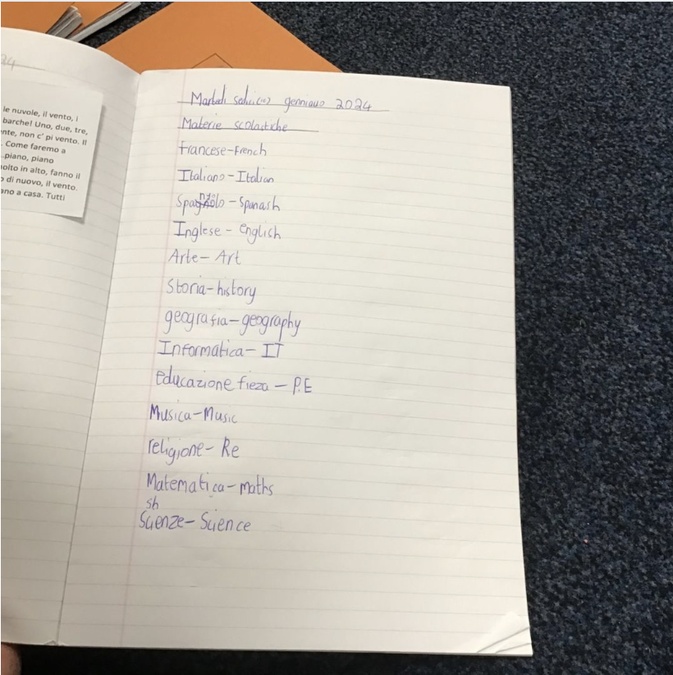 24
le nuvole, il vento, i
barche! Uno, due, tre,
nte, non c' pi vento. Il
. Come faremo a
piano, piano
olto in alto, fanno il
o di nuovo, il vento.
ano a casa. Tutti
Martedì gennaio 2024
Materie scolastiche
Francese-French
Italiano-Italian
Spagnolo-Spanash
Inglese-english
Arte-Art
Storia-history
geografia-geography
Informatica-IT
educazione fieza-P.E
Musica-Music
religione-Re
Matematica-maths
sh
Scienze-Science